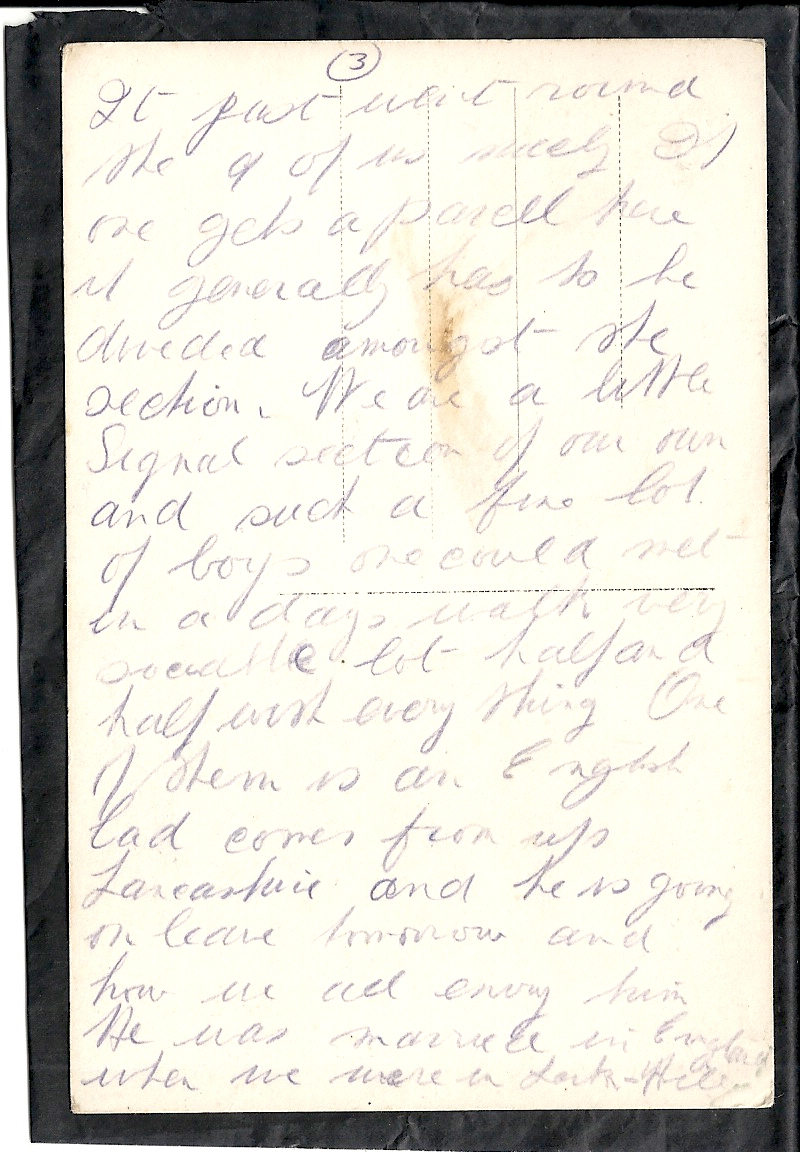 3
It just went round
the 9 of us nicely If
one gets a parcell here
it generally has to be
divided amongst the
section. We are a little
Signal section of our own
and such a fine lot
of boys one could met
in a days walk very
sociable lot half and
half with every thing One
of them is an English
lad comes from up
Lancashire and he is going
on leave tomorrow and
how we all envy him
He was married in England
when we were in Lark-Hill